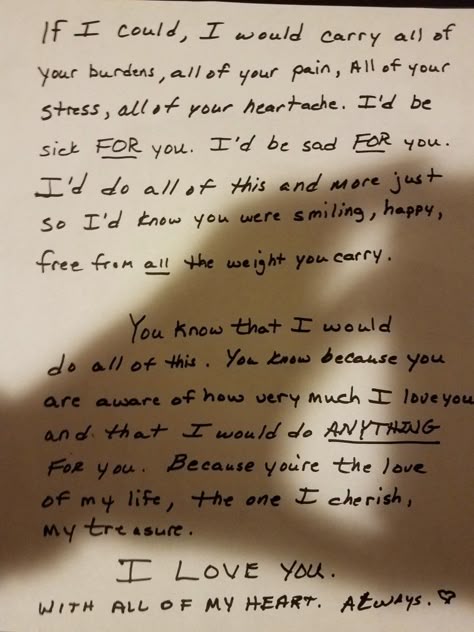 If I could, I would carry all of
your burdens, all of your pain, All of your
stress, all of your heartache. I'd be
sick FOR you. I'd be sad FOR you.
I'd do all of this and more just
so I'd know you were smiling, happy,
free from all the weight you carry.
You know that I would
do all of this. You know because you
are aware of how very much I love you
and that I would do ANYTHING
FOR you. Because you're the love
of my life, the one I cherish,
my treasure.
I LOVE YOU.
WITH ALL OF MY HEART. ALWAYS. ♡